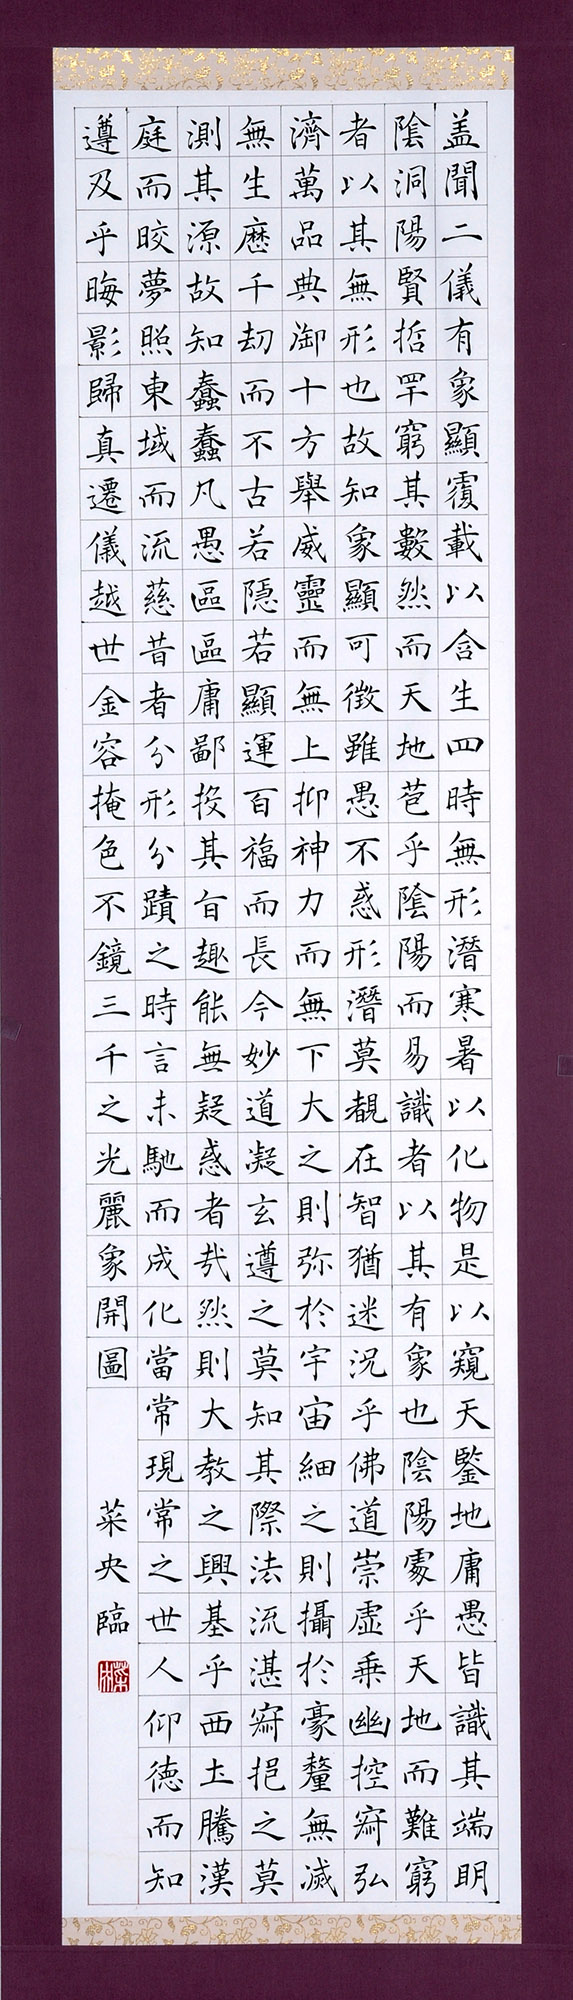 盖聞二儀有象顯覆載以含生四時無形潛寒暑以化物是以窺天鑒地庸愚皆識其端明
陰洞陽賢哲罕窮其數然而天地苞乎陰陽而易識者以其有象也陰陽處乎天地而難窮
者以其無形也故知象顯可徵雖愚不惑形潛莫覩在智猶迷況乎佛道崇虛乗幽控寂弘
濟萬品典御十方舉威靈而無上抑神力而無下大之則弥於宇宙細之則攝於豪釐無滅
無生歷千劫而不古若隱若顯運百福而長今妙道凝玄遵之莫知其際法流湛寂挹之莫
測其源故知蠢蠢凡愚區區庸鄙投其旨趣能無疑惑者哉然則大教之興基乎西土騰漢
庭而晈夢照東域而流慈昔者分形分蹟之時言未馳而成化當常現常之世人仰德而知
遵及乎晦影歸真遷儀越世金容掩色不鏡三千之光麗象開圖
菜央臨